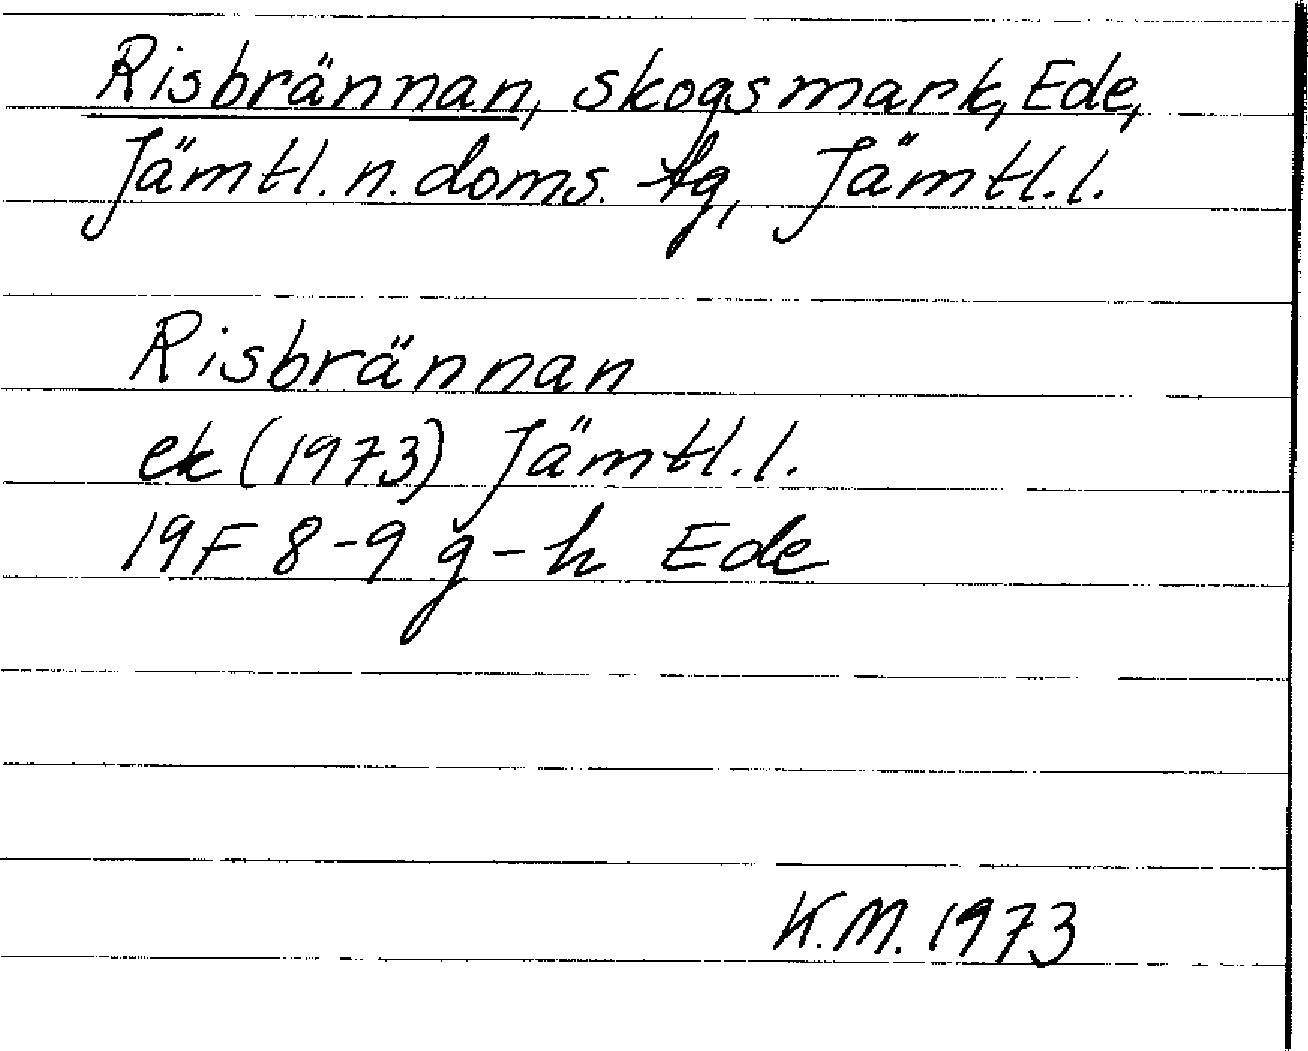 Risbrännan, skogsmark, Ede,
Jämtl. n. doms. tg, Jämtl. l.
Risbrännan
ek (1973) Jämtl. l.
19F 8-9 g-h Ede
K.M. 1973